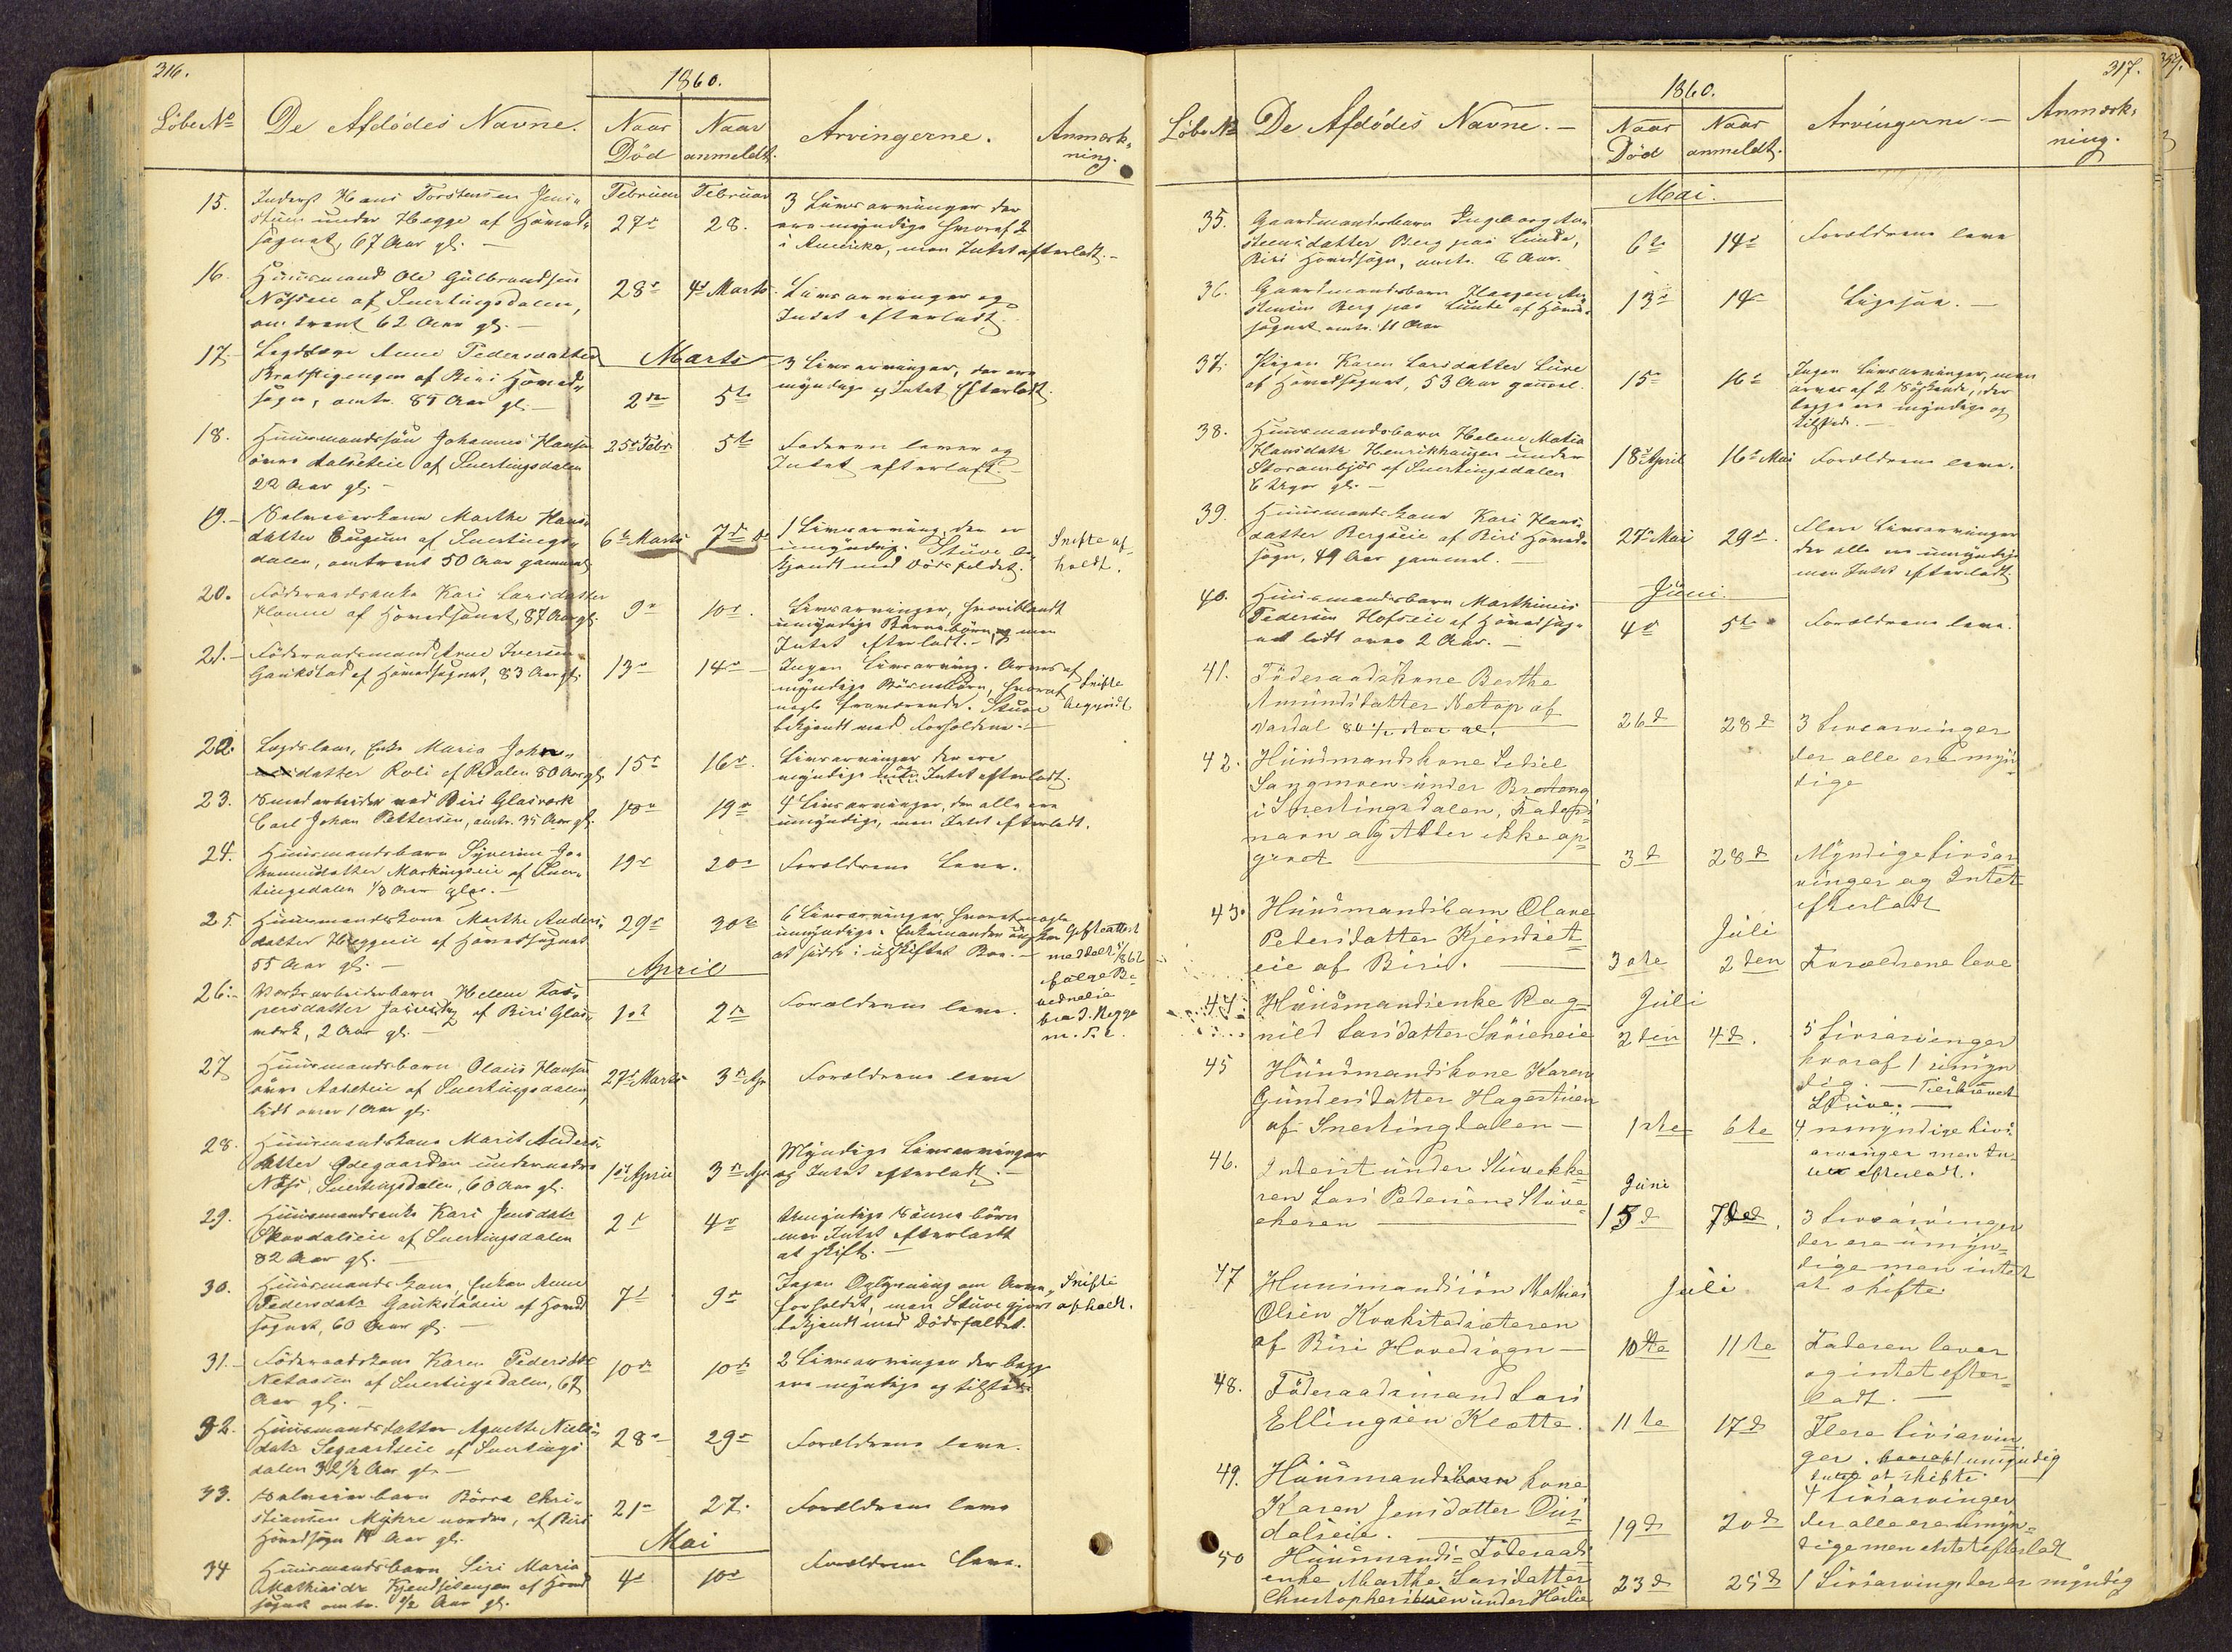 316.
1860.
Løbe No
De Afdødes Navne.
Naar Død
Naar anmeldt.
Arvingerne.
Anmærk-
ning.
Februar Februar
15. Inderst Hans Torstensen Jens-
stuen under Hegge af Hoved-
sognet, 67 Aar gl. –
27d 28.
3 Livsarvinger der
ere myndige hvoraf 2
i Amerika, men Intet efterladt. –
16. Huusmand Ole Gulbrandsen
Nøsseie af Snertingsdalen,
omtrent 62 Aar gl. –
28d 4d Marts.
Livsarvinger og
Intet efterladt.
17. Lægdslem Anne Pedersdatter
af Biri Hoved-
sogn, omtr. 85 Aar gl. –
Marts
2den 5te
3 Livsarvinger, der ere
myndige og Intet efterladt.
18. Huusmandssøn Johannes Hansen
øvre af Snertingsdalen
22 Aar gl. –
25d Febr. 5te
Faderen lever og
Intet efterladt. –
19. Selveierkone Marthe Hans-
datter Eugum af Snertings-
dalen, omtrent 50 Aar gammel
6te Marts 7d do
1 Livsarving der er
umyndig. Stuve be-
kjendt med Dødsfaldet.
Skifte af-
holdt.
20. Føderaadsenke Kari Larsdatter
af Hovedsognet, 87 Aar gl.
9d 10d.
Livsarvinger, hvoriblandt
umyndige Børnebørn, men
Intet efterladt. –
21. Føderaadsmand Arne Iversen
Gaukstad af Hovedsognet, 83 Aar gl.
13d 14d
Ingen Livsarving. Arves af
myndige Børnebørn, hvoraf
nogle fraværende. Stuve
bekjendt med Forholdene. –
Skifte
begyndt.
22. Lægdslem, Enke Maria John-
datter Roli af Redalen 80 Aar gl.
15d 16d.
Livsarvinger der ere
myndige og Intet efterladt.
23. Smedarbeider ved Biri Glasværk
Carl Johan Pettersen, omtr. 35 Aar gl.
18d 19d
4 Livsarvinger, der alle ere
umyndige, men Intet efterladt.
24. Huusmandsbarn Syverine Jo-
hannesdatter af Sner-
tingsdalen 1/3 Aar gl. –
19d 20d
Forældrene leve.
25. Huusmandskone Marthe Anders-
datter Heggeeie af Hovedsognet
55 Aar gl. –
29d 30te
6 Livsarvinger, hvoraf nogle
umyndige. Enkemanden ønsker
at sidde i uskiftet Boe. –
meddelt
26. Værksarbeiderbarn Helene Kas-
persdatter af Biri Glas-
værk, 2 Aar gl. –
April
1st 2den
Forældrene leve.
27. Huusmandsbarn Olaus Hansen
øvre af Snertingsdalen,
lidt over 1 Aar gl.
27d Marts 3d Apr
Forældrene leve
28. Huusmandskone Marit Anders-
datter Ødegaarden under nedre
Nøss, Snertingsdalen, 60 Aar gl.
1st April 3d Apr
Myndige Livsarvinger
og Intet efterladt. –
29. Huusmandsenke Kari Jensdatr
Skovdalseie af Snertingsdalen
82 Aar gl. –
2d 4d
Umyndige Sønnebørn
men Intet efterladt
at skifte. –
30. Huusmandskone, Enken Anne
Pedersdatr Gaukstadeie af Hoved-
sognet, 60 Aar gl. –
7d 9d
Ingen Oplysning om Arve-
forholdet, men Stuve gjort
bekjendt med Dødsfaldet.
Skifte
afholdt.
31. Føderaadskone Karen Pedersdtr
af Snertingsdalen, 67
Aar gl. –
10d 10d
2 Livsarvinger der begge
ere myndige og tilstede
32. Huusmandsdatter Agnethe Niels-
datr Segaardseie af Snertings-
dalen 32 1/2 Aar gl. –
28d 29d
Forældrene leve.
33. Selveierbarn Børre Chri-
stiansen Myhre nordre, af Biri
Hovedsogn Aar gl.
21d 27.
Forældrene leve
34. Huusmandsbarn Siri Maria
Mathiasdr af Hoved-
sognet omtr. 1/2 Aar gl.
Mai
4d 10d
Forældrene leve.
317.
1860.
Løbe No
De Afdødes Navne. –
Naar Død
Naar anmeldt.
Arvingerne –
Anmærk-
ning.
Mai.
35. Gaardmandsbarn Ingeborg An-
stensdatter Berg paa Lunde,
Biri Hovedsogn, omtr. 6 Aar.
6te 14d
Forældrene leve
36. Gaardmandsbarn Haagen An-
stensen Berg paa Lunde af Hoved-
sognet omtr. 11 Aar
13d 14d
Ligesaa. –
37. Pigen Karen Larsdatter Lure
af Hovedsognet, 53 Aar gammel.
15d 16d
Ingen Livsarvinger, men
arves af 2 Søskende, der
begge ere myndige og
tilstede. –
38. Huusmandsbarn Helene Matia
Hansdatr Henrikhaugen under
af Snertingsdalen
6 Uger gl. –
18d April 16d Mai
Forældrene leve.
39. Huusmandskone Kari Hans-
datter Bergseie af Biri Hoved-
sogn, 49 Aar gammel. –
27d Mai 29d.
Flere Livsarvinger
der alle ere umyndige
men Intet efterladt
40. Huusmandsbarn Marthinus
Pedersen Hofseie af Hovedsog-
net lidt over 2 Aar. –
Juni.
4d 5te
Forældrene leve.
41. Føderaadskone Berthe
Amundsdatter Netop af
Vardal 80 1/2 Aar gl.
26d 28d
3 Livsarvinger
der alle ere myn-
dige
42. Huusmandskone Sidsel
Sangmoen under
i Snertingsdalen, Fader-
navn og Alder ikke op-
givet
3d 28d
Myndige Livsar-
vinger og Intet
efterladt
43. Huusmandsbarn Olave
Pedersdatter Kjendset-
eie af Biri. –
Juli
30te 2den
Forældrene leve
44. Huusmandsenke Rag-
nild Larsdatter
Juli
2den 4d.
5 Livsarvinger
hvoraf 1 umyn-
dig. – Tilskrevet
Stuve. –
45 Huusmandskone Karen
Gundersdatter Hagestuen
af Snertingdalen –
1ste 6te
4 umyndige Livs-
arvinger men In-
tet efterladt.
46. Inderst under Stuvekke-
ren Lars Pedersen Stuve-
ekeren
Juni
15d 7de.
3 Livsarvinger
der ere umyn-
dige men intet
at skifte
47 Huusmandssøn Mathias
Olsen
af Biri Hovedsogn –
Juli
10de 11te
Faderen lever
og intet efter-
ladt. –
48. Føderaadsmand Lars
Ellingsen Klotte.
11te 17d
Flere Livsarvin-
ger. hvoraf 1 umyndig
Intet at skifte.
49. Huusmands kone
Karen Jensdatter
dalseie.
19d 20d
4 Livsarvinger
der alle ere umyn-
dige men intet efterladt
50 Huusmands-Føderaads
enke Marthe Larsdatter
under
23d 25d
1 Livsarving, der er myndig